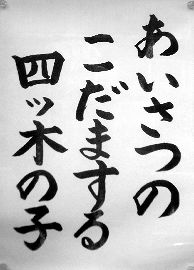 あいさつの
こだまする
四ッ木の子